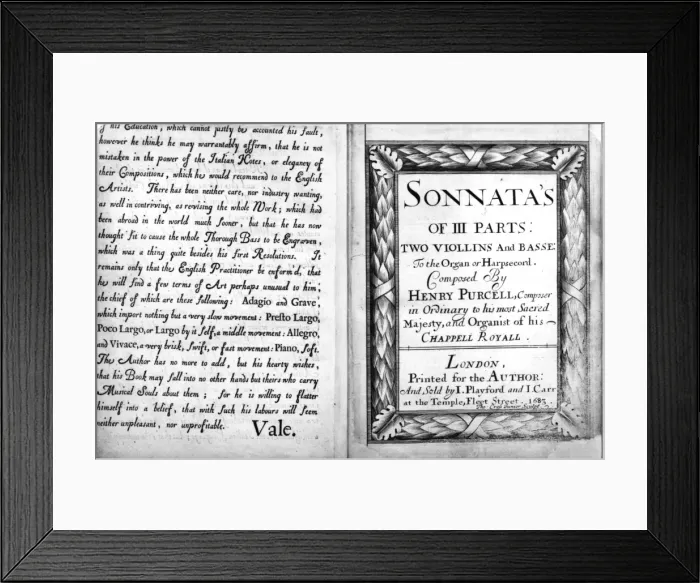 of his Education, which cannot justly be accounted his fault,
however he thinks he may warrantably affirm, that he is not
mistaken in the power of the Italian Notes, or elegancy of
their Compositions, which he would recommend to the English
Artists. There has been neither care, nor industry wanting,
as well in contriving, as revising the whole Work; which had
been abroad in the world much sooner, but that he has now
thought fit to cause the whole Thorough Bass to be Engraven,
which was a thing quite besides his first Resolutions. It
remains only that the English Practitioner be enform'd, that
he will find a few terms of Art perhaps unusual to him,
the chief of which are these following: Adagio and Grave,
which import nothing but a very slow movement: Presto Largo,
Poco Largo, or Largo by it self, a middle movement: Allegro,
and Vivace, a very brisk, swift, or fast movement: Piano, soft.
The Author has no more to add, but his hearty wishes,
that his Book may fall into no other hands but theirs who carry
Musical Souls about them; for he is willing to flatter
himself into a belief, that with such his labours will seem
neither unpleasant, nor unprofitable. Vale.
SONNATA'S
OF III PARTS:
TWO VIOLLINS And BASSE:
To the Organ or Harpsecord.
Composed By
HENRY PURCELL, Composer
in Ordinary to his most Sacred
Majesty, and Organist of his
CHAPPELL ROYALL.
LONDON,
Printed for the AUTHOR:
And Sold by I. Playford and I. Carr
at the Temple, Fleet Street. 1683.